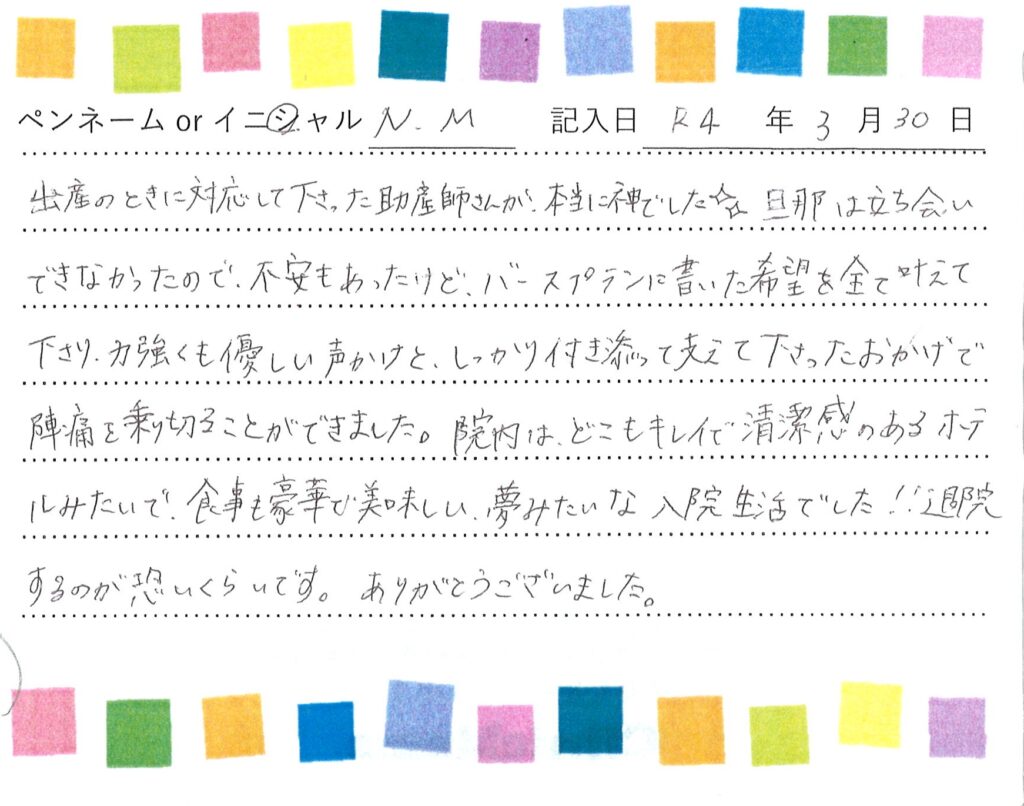 ペンネーム or イニシャル N.M 記入日 R4 年 3 月 30 日
出産のときに対応して下さった助産師さんが、本当に神でした☆☆ 旦那は立ち会い
できなかったので、不安もあったけど、バースプランに書いた希望を全て叶えて
下さり、力強くも優しい声かけと、しっかり付き添って支えて下さったおかげで
陣痛を乗り切ることができました。院内は、どこもキレイで清潔感のあるホテ
ルみたいで、食事も豪華で美味しい、夢みたいな入院生活でした!!退院
するのが恐いくらいです。 ありがとうございました。